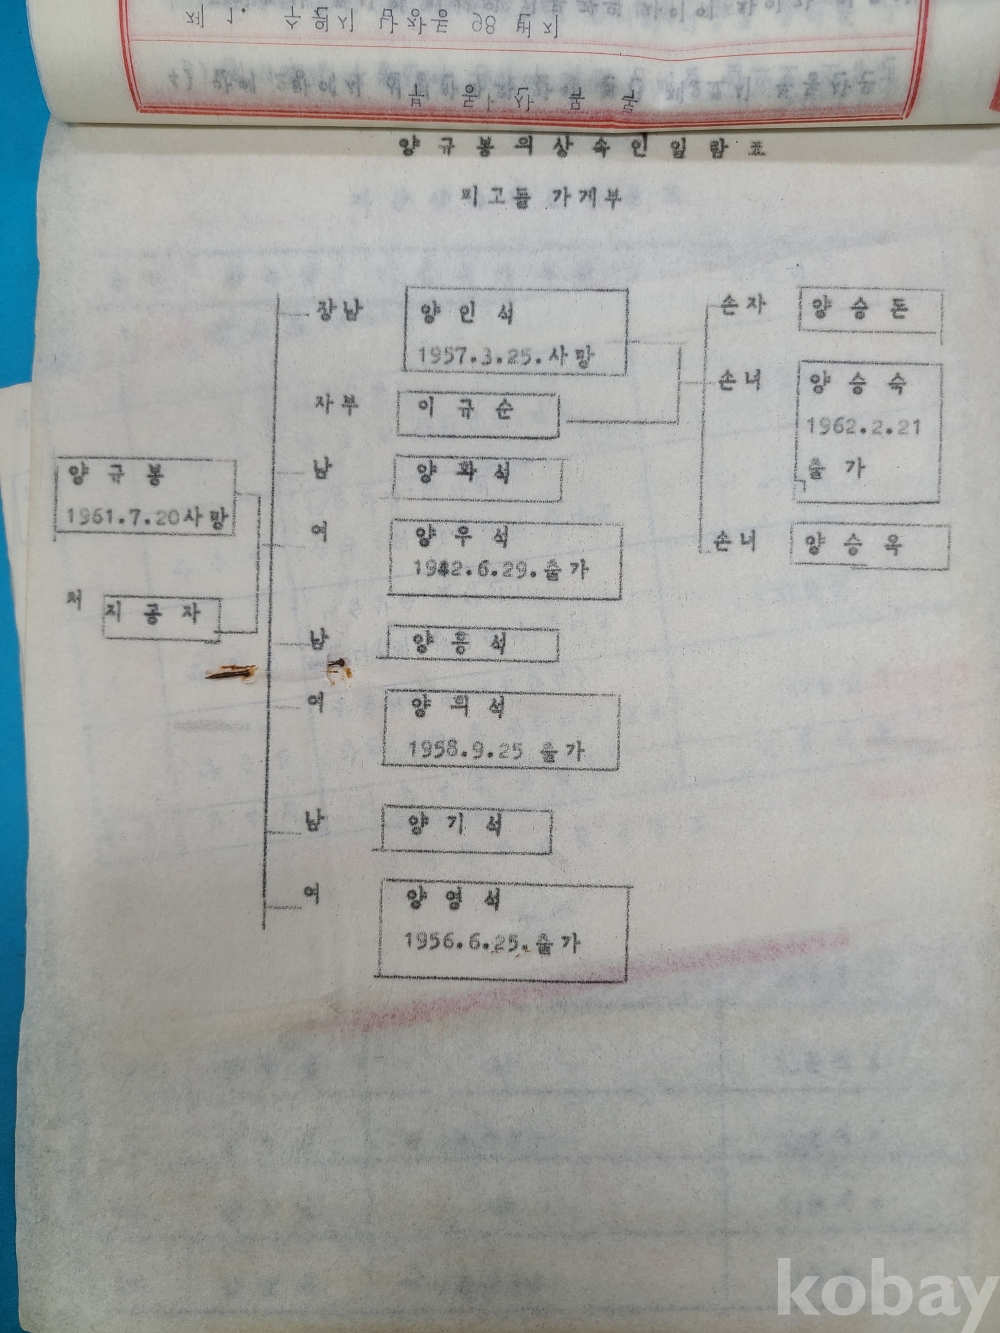 제 1. 수원시 남창동 98 번지
양 규 봉 의 상 속 인 일 람 표
피고들 가게부
장남 양 인 석
1957.3.25.사망
자부 이 규 순
남 양 화 석
여 양 우 석
1942.6.29.출가
남 양 흥 석
여 양 희 석
1958.9.25 출가
남 양 기 석
여 양 영 석
1956.6.25.출가
양 규 봉
1961.7.20사망
처 지 공 자
손자 양 승 돈
손녀 양 승 숙
1962.2.21
출 가
손녀 양 승 옥
kobay